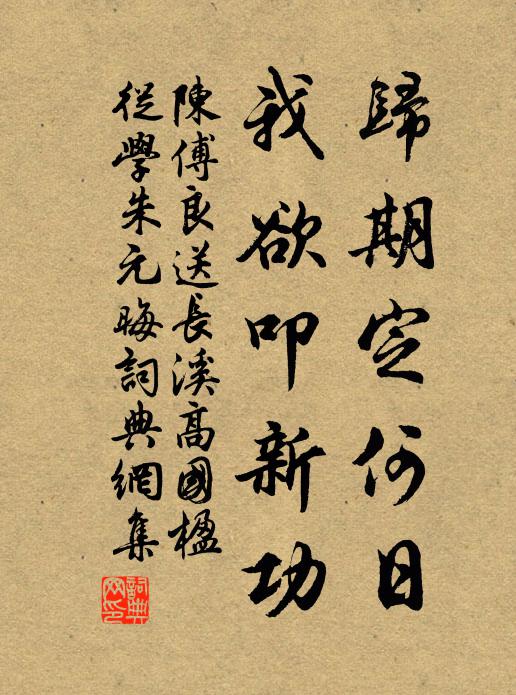 歸期定何日
我欲叩新功
陳傅良送長溪高國楹
從學朱元晦詞典網集
詞典网印